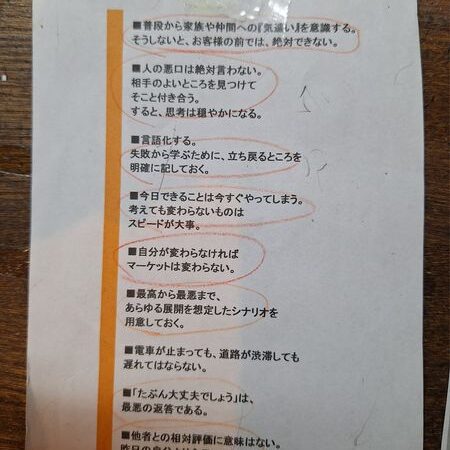 ■普段から家族や仲間への『気遣い』を意識する。
そうしないと、お客様の前では、絶対できない。
■人の悪口は絶対言わない。
相手のよいところを見つけて
そこと付き合う。
すると、思考は穏やかになる。
■言語化する。
失敗から学ぶために、立ち戻るところを
明確に記しておく。
■今日できることは今すぐやってしまう。
考えても変わらないものは
スピードが大事。
■自分が変わらなければ
マーケットは変わらない。
■最高から最悪まで、
あらゆる展開を想定したシナリオを
用意しておく。
■電車が止まっても、道路が渋滞しても
遅れてはならない。
■「たぶん大丈夫でしょう」は、
最悪の返答である。
■他者との相対評価に意味はない。
昨日の自分より